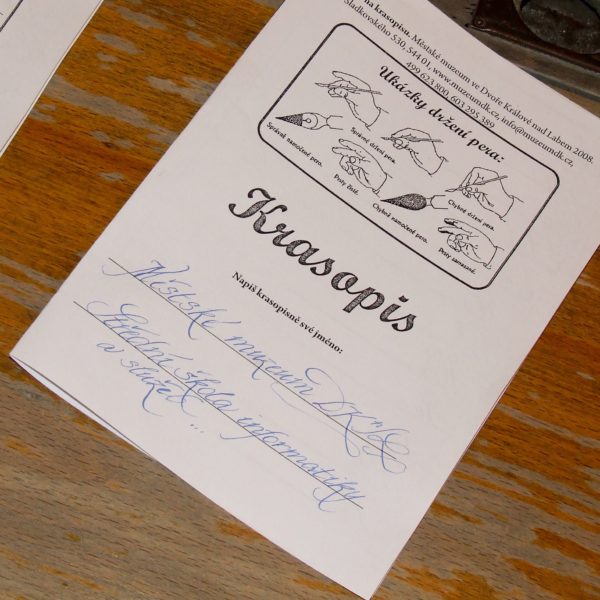 na krasopisu. Městské muzeum ve Dvoře Králové nad Labem 2008.
Sladkovského 530, 544 01, www.muzeumdk.cz, info@muzeumdk.cz,
499 623 800, 603 295 389
Ukázky držení pera:
Správně namočené pero.
Správné držení pera.
Prsty čisté.
Chybně namočené pero.
Chybné držení pera.
Prsty zamazané.
Krasopis
Napiš krasopisně své jméno:
Městské muzeum DKnL
Střední škola informatiky
a služeb ...